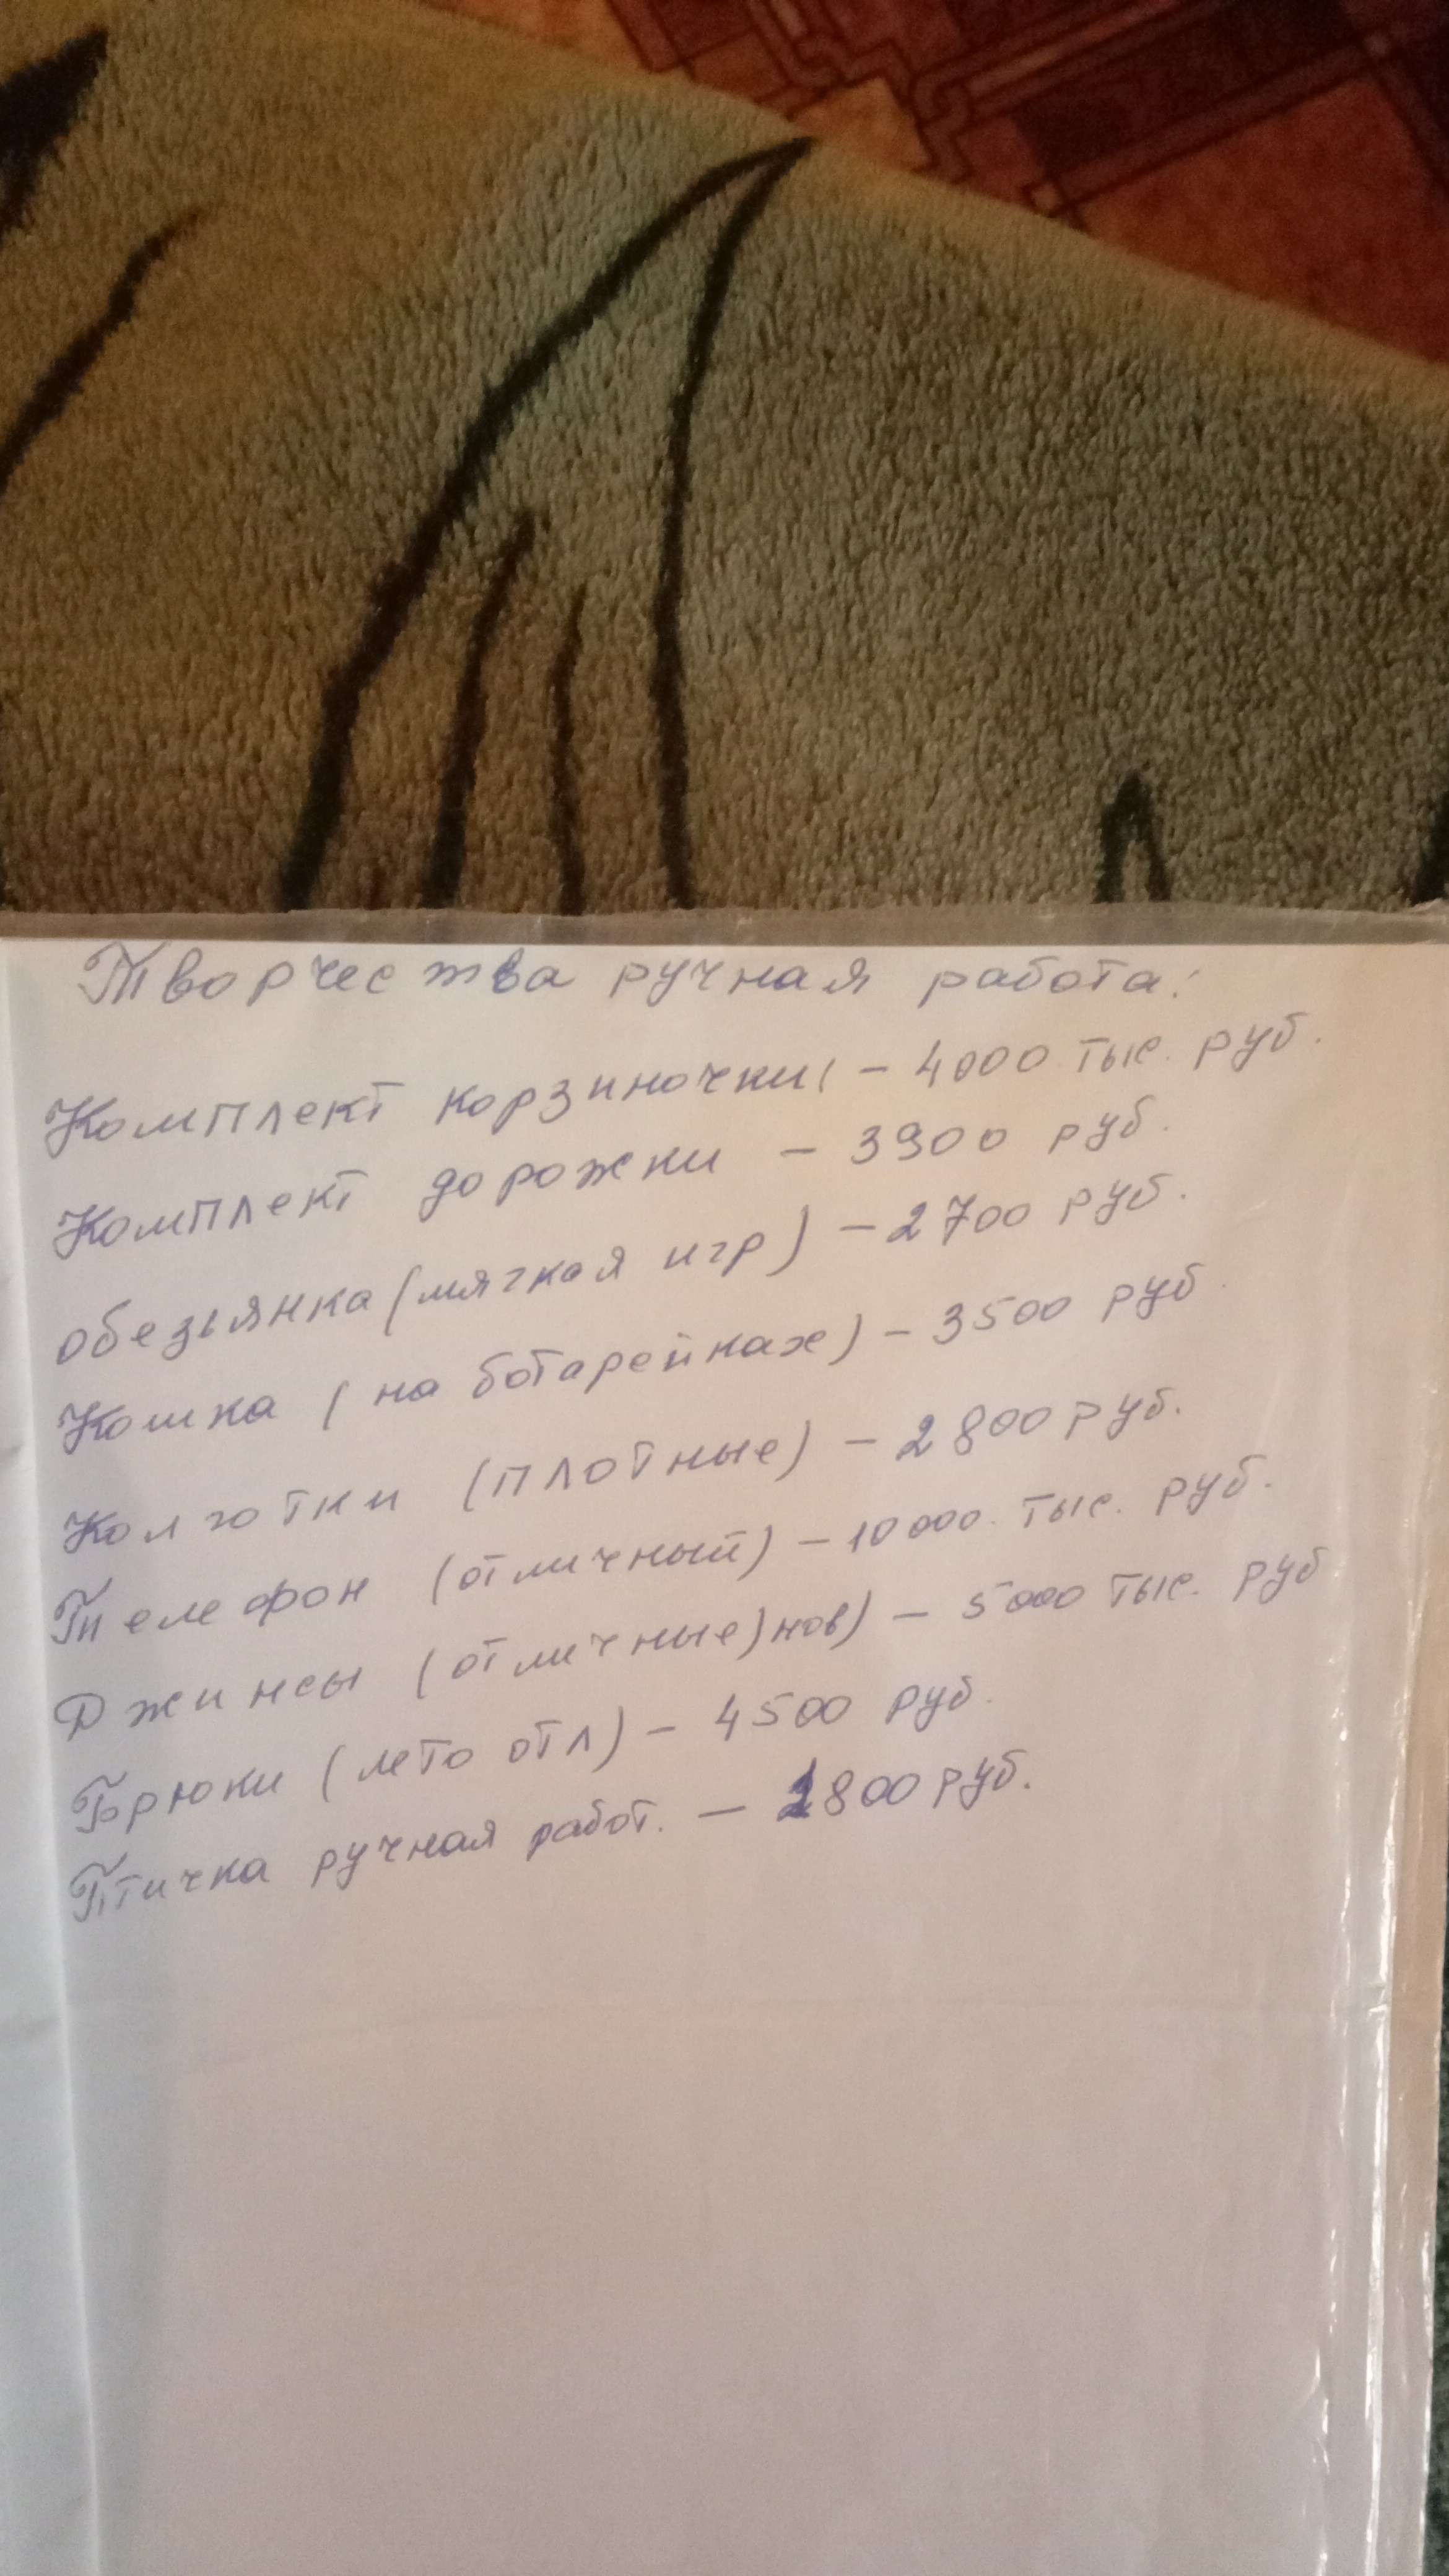 Творчества ручная работа:
Комплект корзиночки - 4000 тыс. руб.
Комплект дорожки - 3900 руб.
обезьянка (мягкая игр) - 2700 руб.
Кошка (на ботарейках) - 3500 руб.
Колготки (плотные) - 2800 руб.
Телефон (отличный) - 10000. тыс. руб.
Джинсы (отличные) нов) - 5000 тыс. руб
Брюки (лето отл) - 4500 руб.
Птичка ручная работ. - 1800 руб.